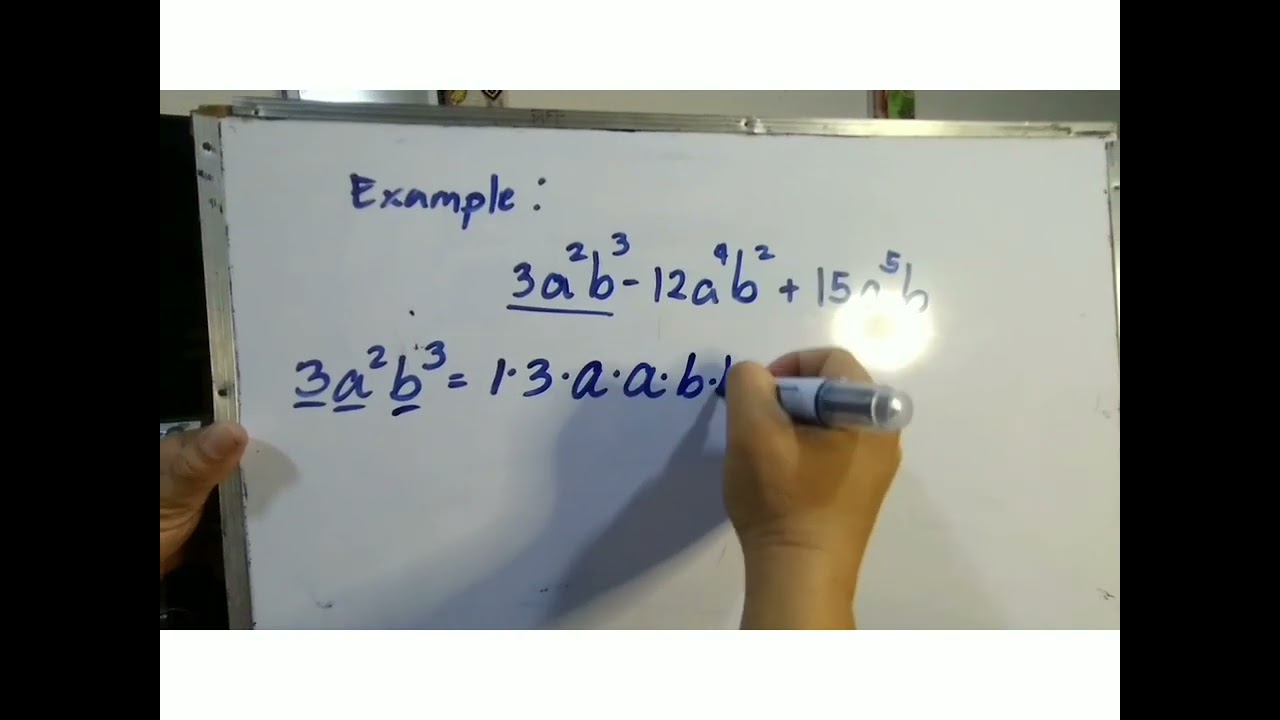 Example:
3a²b³ - 12a⁴b² + 15a⁵b
3a²b³ = 1·3·a·a·b·b